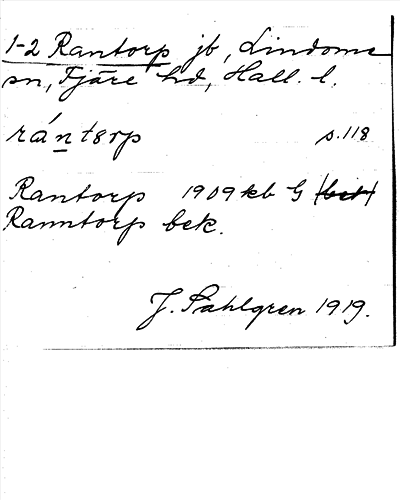 1-2 Rantorp jb, Lindome
sn, Fjäre hd, Hall. l.
rántɛrp s. 118
Rantorp 1909 kb G (bet)
Ranntorp bek.
J. Sahlgren 1919.